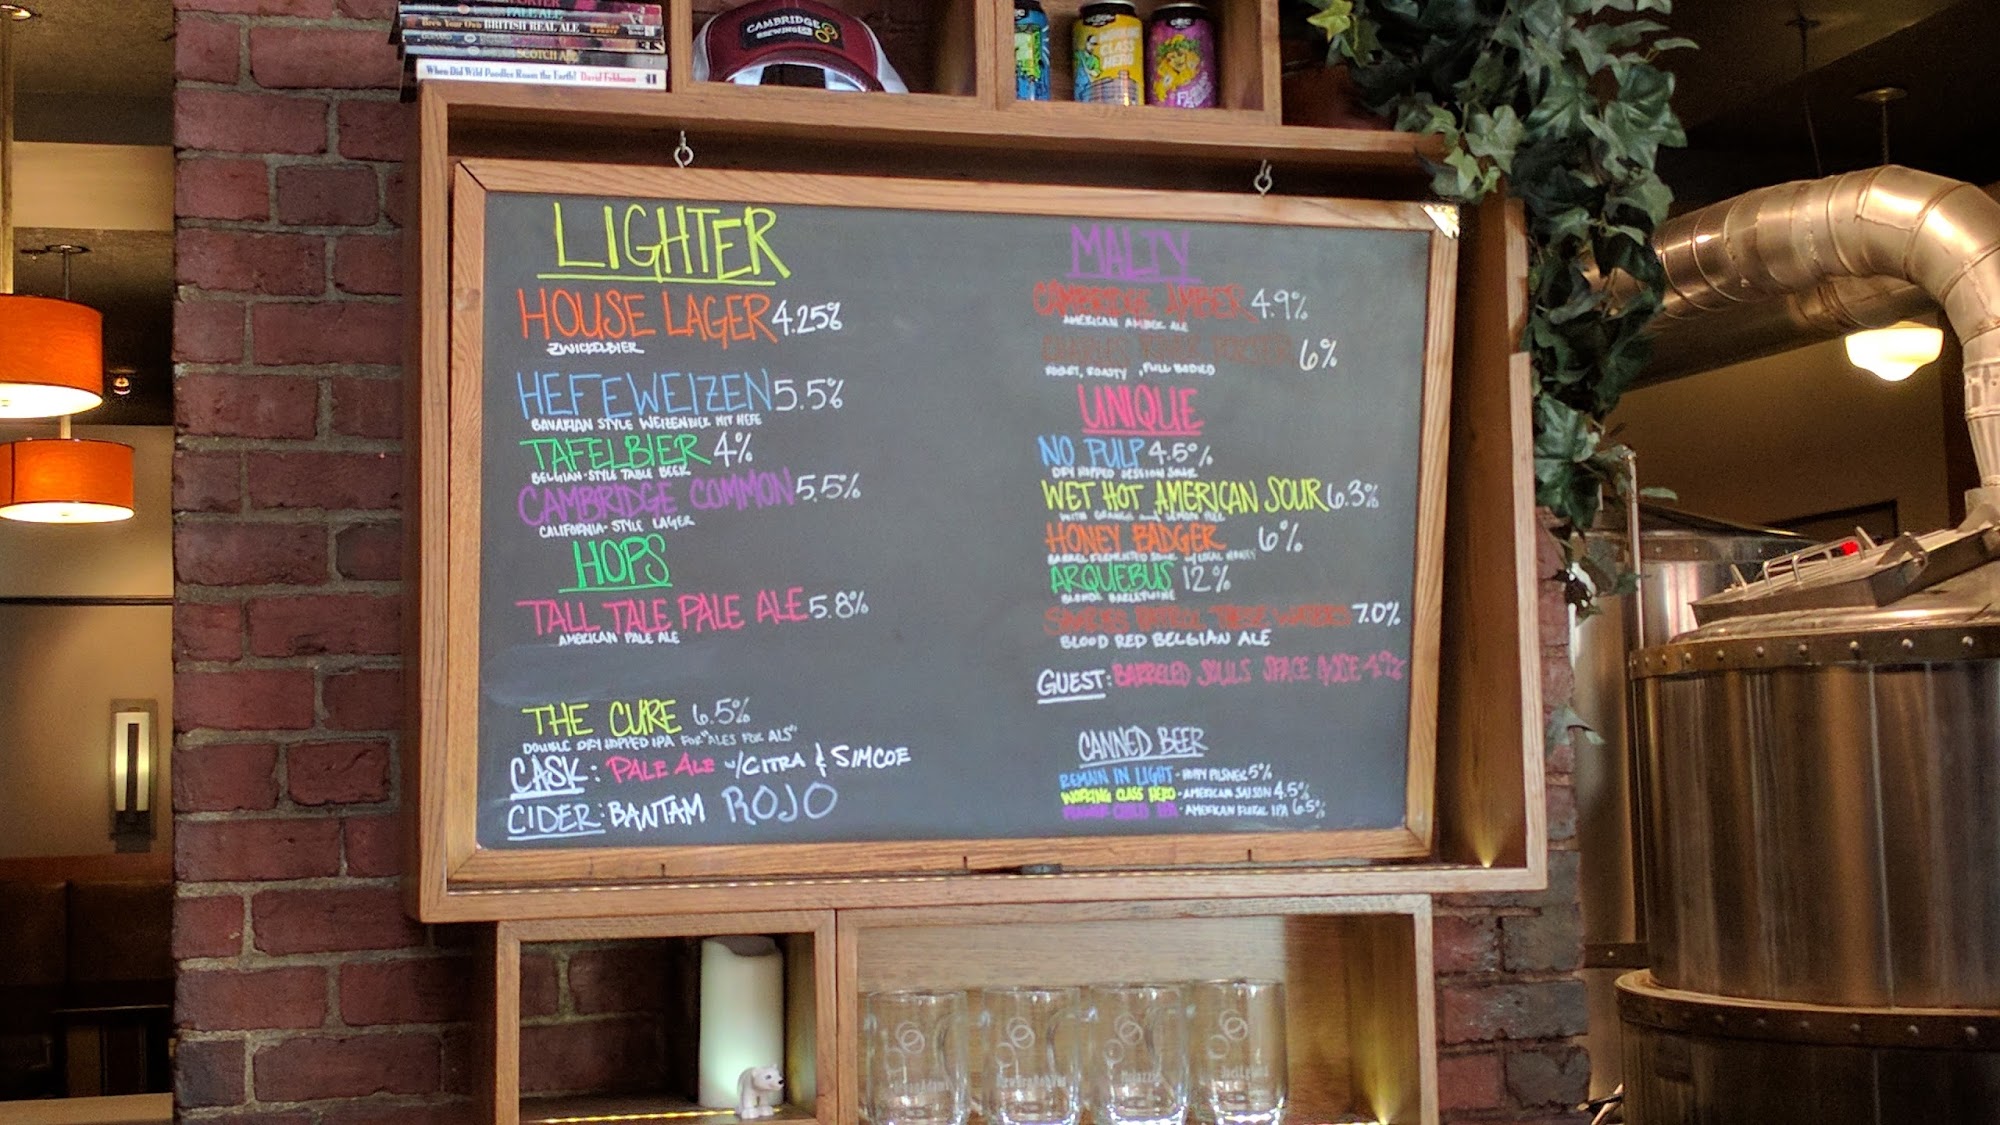 PALE ALE
Brew Your Own BRITISH REAL ALE
SCOTCH ALE
When Did Wild Poodles Roam the Earth? David Feldman
CAMBRIDGE
BREWING
WORKING
CLASS
HERO
LIGHTER
HOUSE LAGER 4.25%
ZWICKELBIER
HEFEWEIZEN 5.5%
BAVARIAN STYLE WEIZENBIER MIT HEFE
TAFELBIER 4%
BELGIAN-STYLE TABLE BEER
CAMBRIDGE COMMON 5.5%
CALIFORNIA-STYLE LAGER
HOPS
TALL TALE PALE ALE 5.8%
AMERICAN PALE ALE
THE CURE 6.5%
DOUBLE DRY HOPPED IPA FOR "ALES FOR ALS"
CASK: PALE ALE w/CITRA & SIMCOE
CIDER: BANTAM ROJO
MALTY
CAMBRIDGE AMBER 4.9%
AMERICAN AMBER ALE
CHARLES RIVER PORTER 6%
ROBUST, ROASTY, FULL BODIED
UNIQUE
NO PULP 4.5%
DRY HOPPED SESSION SOUR
WET HOT AMERICAN SOUR 6.3%
WITH ORANGE and LEMON PEEL
HONEY BADGER 6%
BARREL FERMENTED SOUR w/LOCAL HONEY
ARQUEBUS 12%
BLONDE BARLEYWINE
PATROL THESE WATERS 7.0%
BLOOD RED BELGIAN ALE
GUEST: BARRELED SOULS SPACE 4.9%
CANNED BEER
REMAIN IN LIGHT - HOPPY PILSNER 5%
WORKING CLASS HERO - AMERICAN SAISON 4.5%
FLOWER CHILD IPA - AMERICAN FLORAL IPA 6.5%